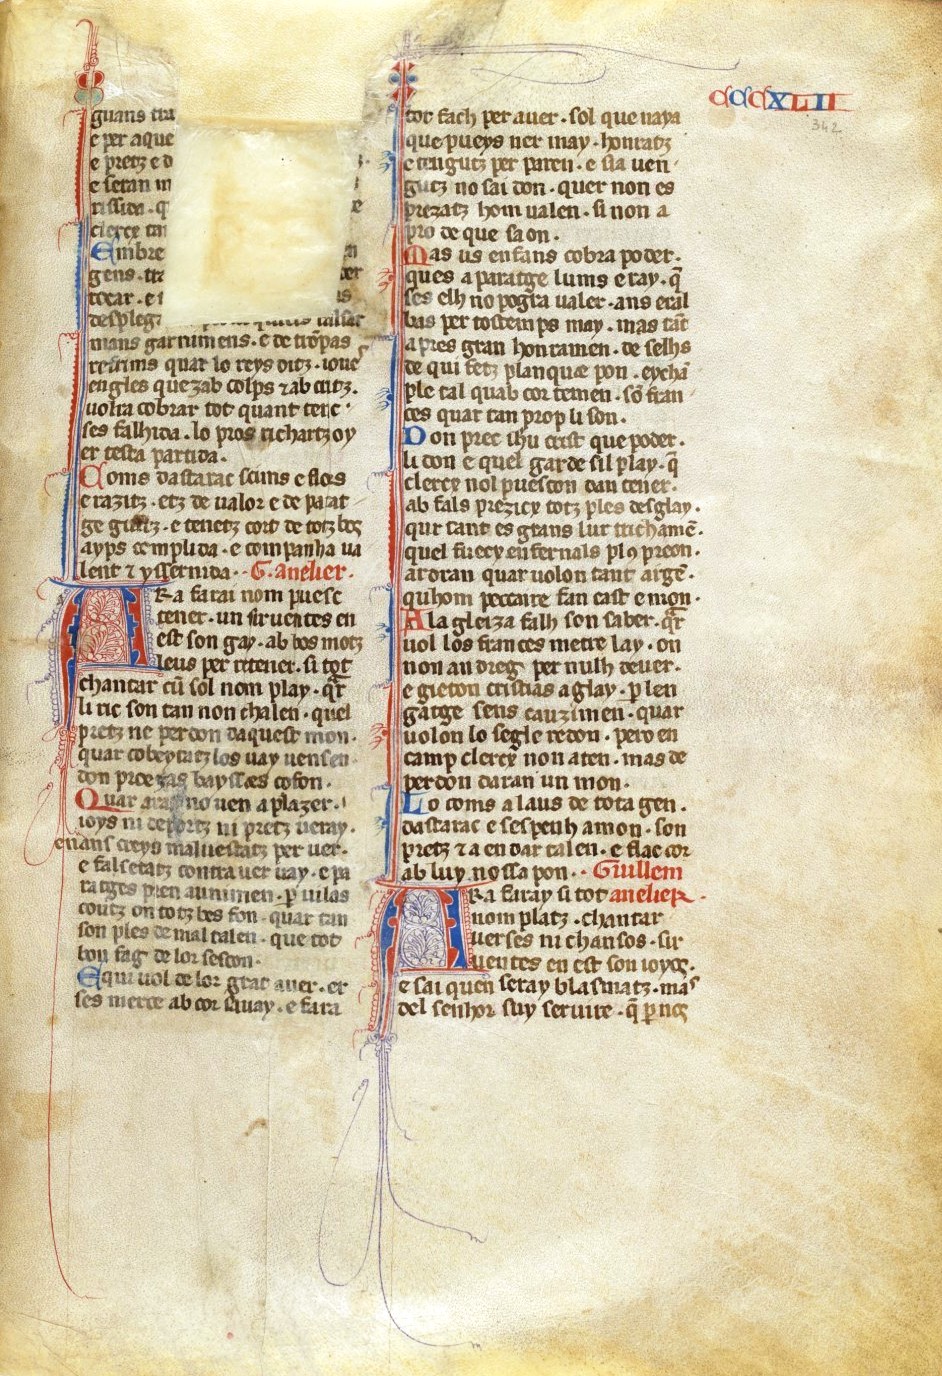 CCCXLII
342
guans tra
e per aque
e pretz e d
e seran m
rissida · q
clerex tm
Embre
gens · tra
tocar · e i
desplegz
mans garnimens · e de trōpas
refrims quar lo reys ditz · ioues
engles quezab colps ⁊ ab critz ·
uolra cobrar tot quant tenc ·
ses falhida · lo pros richartz oy
er testa partida ·
Coms dastarac scuns e flors
e razitz · etz de ualor e de parat
ge guitz · e tenetz cort de totz bos
ayps complida · e companha ua
lent ⁊ yssernida · · G. anelier ·
ARa farai nom puesc
tener · un siruentes en
est son gay · ab bos motz
leus per retener · si tot
chantar cū sol nom play · qr
li ric son tan non chalen · quel
pretz ne perdon daquest mon ·
quar cobeytatz los uay uensen
don proezas bayssa e cofon ·
Quar aras no uen a plazer ·
ioys ni deportz ni pretz ueray ·
enans creys maluestatz per uer ·
e falsetatz contra uer uay · e pa
ratges pren aunimen · ꝑ uilas
coutz on totz bes fon · quar tan
son ples de mal talen · que tot
bon fag de lor rescon ·
E qui uol de lor grat auer · er
ses merce ab cor sauay · e fara
tot fach per auer · sol que naya
que pueys ner may · honratz
e tengutz per paren · e sia uen
gutz no sai don · quer non es
prezatz hom ualen · si non a
pro de que sa on ·
Mas us enfans cobra poder ·
ques a paratge lums e ray · q̄
ses elh no pogra ualer · ans eral
bas per tostemps may · mas tāt
a pres gran honramen · de selhs
de qui fetz planqua e pon · eychā
ple tal quab cor temen · sō fran
ces quar tan prop li son ·
Don prec ihu crist que poder ·
li don e quel garde sil play · q̄
clercx nol puescon dan tener ·
ab fals prezicx totz ples desglay ·
qur tant es grans lur trichamē ·
quel fuecx enfernals plꝰ preon ·
ardran quar uolon tant argē ·
quhom peccaire fan cast e mon ·
A la gleiza falh son saber · qr
uol los frances metre lay · on
non an dreg per nulh deuer ·
e gieton cristias a glay · ꝑ len
gatge sens cauzimen · quar
uolon lo segle redon · pero en
camp clercx non aten · mas de
perdon daran un mon ·
Lo coms a laus de tota gen ·
dastarac e ses penh amon · son
pretz ⁊ a en dar talen · e flac cor
ab luy no sa pon · · Guillem
ARa faray si tot anelier ·
nom platz · chantar
uerses ni chansos · sir
uentes en est son ioyos ·
e sai quen seray blasmatz · mas
del senhor suy seruire · q̄